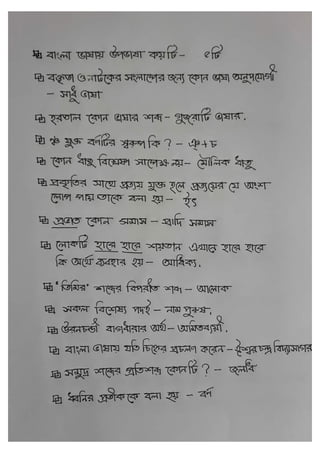 বাংলা ভাষায় উপভাষা কয়টি - ৫টি
বক্তৃতা ও নাটকের সংলাপের জন্য কোন ভাষা অনুপযোগী
- সাধু ভাষা
হরতাল কোন ভাষার শব্দ - গুজরাটি ভাষার.
ঞ্চ যুক্ত বর্ণটির স্বরূপ কি ? - ঞ + চ
কোন ধাতু বিশ্লেষণ সাপেক্ষ নয় - মৌলিক ধাতু
প্রকৃতির সাথে প্রত্যয় যুক্ত হলে প্রত্যয়ের যে অংশ
লোপ পায় তাকে বলা হয় - ইৎ
প্রভাত কোন সমাস - প্রাদি সমাস
লোকটি হাড়ে হাড়ে শয়তান এখানে হাড়ে হাড়ে
কি অর্থে ব্যবহার হয় - আধিক্য.
'তিমির' শব্দের বিপরীত শব্দ - আলোক
সকল বিশেষ্য পদই - নাম পুরুষ.
উড়নচণ্ডী বাগধারার অর্থ - অমিতব্যয়ী.
বাংলা ভাষায় যতি চিহ্নের প্রচলন করেন - ঈশ্বর চন্দ্র বিদ্যাসাগর
সমুদ্র শব্দের প্রতিশব্দ কোনটি ? - জলধি
ধ্বনির প্রতীক কে বলা হয় - বর্ণ